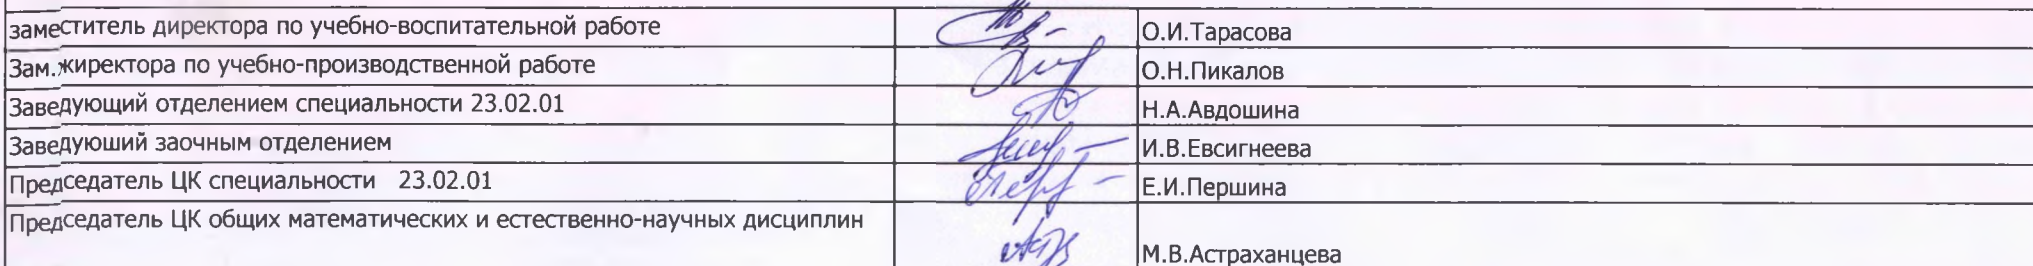 заместитель директора по учебно-воспитательной работе О.И.Тарасова
Зам.жиректора по учебно-производственной работе О.Н.Пикалов
Заведующий отделением специальности 23.02.01 Н.А.Авдошина
Заведуюший заочным отделением И.В.Евсигнеева
Председатель ЦК специальности 23.02.01 Е.И.Першина
Председатель ЦК общих математических и естественно-научных дисциплин
М.В.Астраханцева